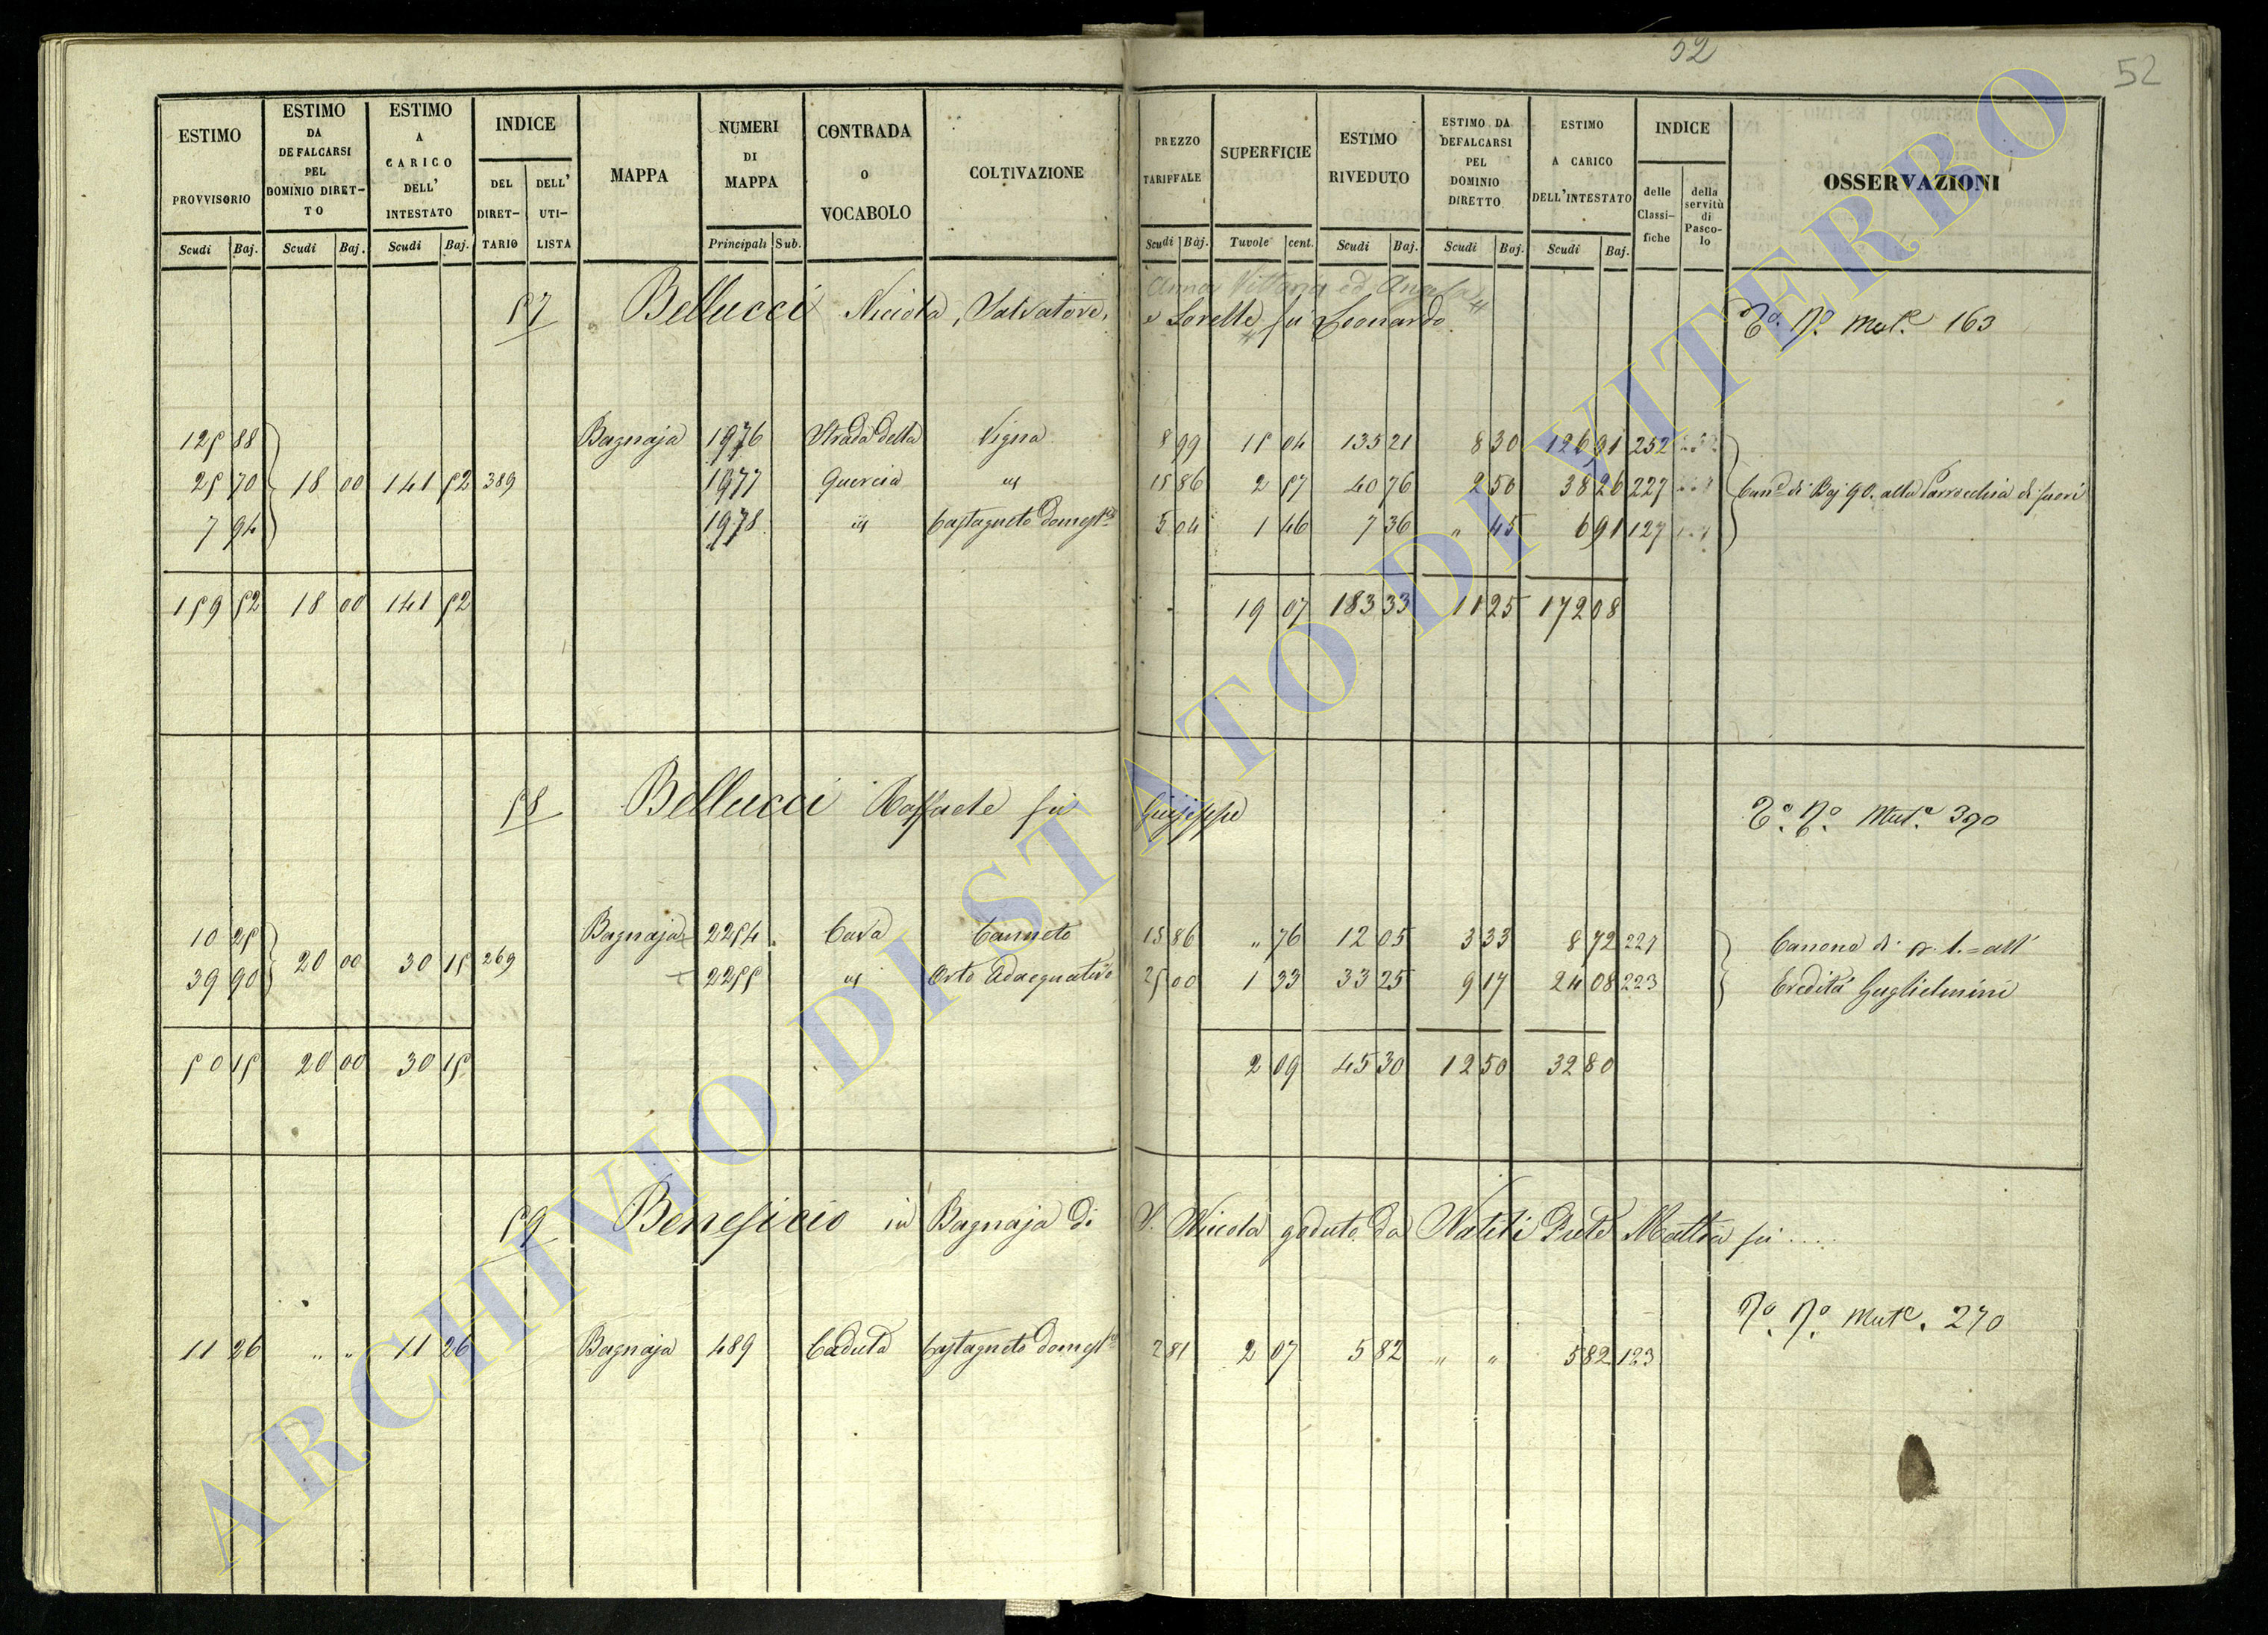 52
52
ESTIMO PROVVISORIO
ESTIMO DA DEFALCARSI PEL DOMINIO DIRETTO
ESTIMO A CARICO DELL' INTESTATO
INDICE
DEL DIRETTARIO
DELL' UTILISTA
MAPPA
NUMERI DI MAPPA
CONTRADA O VOCABOLO
COLTIVAZIONE
PREZZO TARIFFALE
SUPERFICIE
ESTIMO RIVEDUTO
ESTIMO DA DEFALCARSI PEL DOMINIO DIRETTO
ESTIMO A CARICO DELL'INTESTATO
INDICE
delle Classifiche
della servitù di Pascolo
OSSERVAZIONI
Scudi Baj. Scudi Baj. Scudi Baj. Principali Sub. Scudi Baj. Tavole cent. Scudi Baj. Scudi Baj. Scudi Baj.
Anna Vittoria ed Angela
57 Bellucci Nicola, Salvatore, e Sorelle fu Leonardo. 163
125 88 Bagnaja 1976 Strada della Vigna 8 99 15 04 135 21 8 30 126 91 252
25 70 18 00 141 52 389 1977 Quercia " 15 86 2 57 40 76 2 50 38 26 227 di Baj 90. alla Parrocchia di fuori
7 94 1978 " Castagneto domest.co 5 04 1 46 7 36 " 45 6 91 127
159 52 18 00 141 52 19 07 183 33 11 25 172 08
58 Bellucci Raffaele fu Giuseppe Mut.e 390
10 25 Bagnaja 2254 Cava Canneto 15 86 " 76 12 05 3 33 8 72 227 Canone di 1. all'
39 90 20 00 30 15 269 2255 " Orto Adacquativo 25 00 1 33 33 25 9 17 24 08 223 Eredità Guglielmini
50 15 20 00 30 15 2 09 45 30 12 50 32 80
59 Beneficio in Bagnaja di S. Nicola goduto da Natili Prete Mattia fu .....
Mut.e 270
11 26 " " 11 26 Bagnaja 489 Caduta Castagneto domest.co 2 81 2 07 5 82 " " 5 82 123
ARCHIVIO DI STATO DI VITERBO